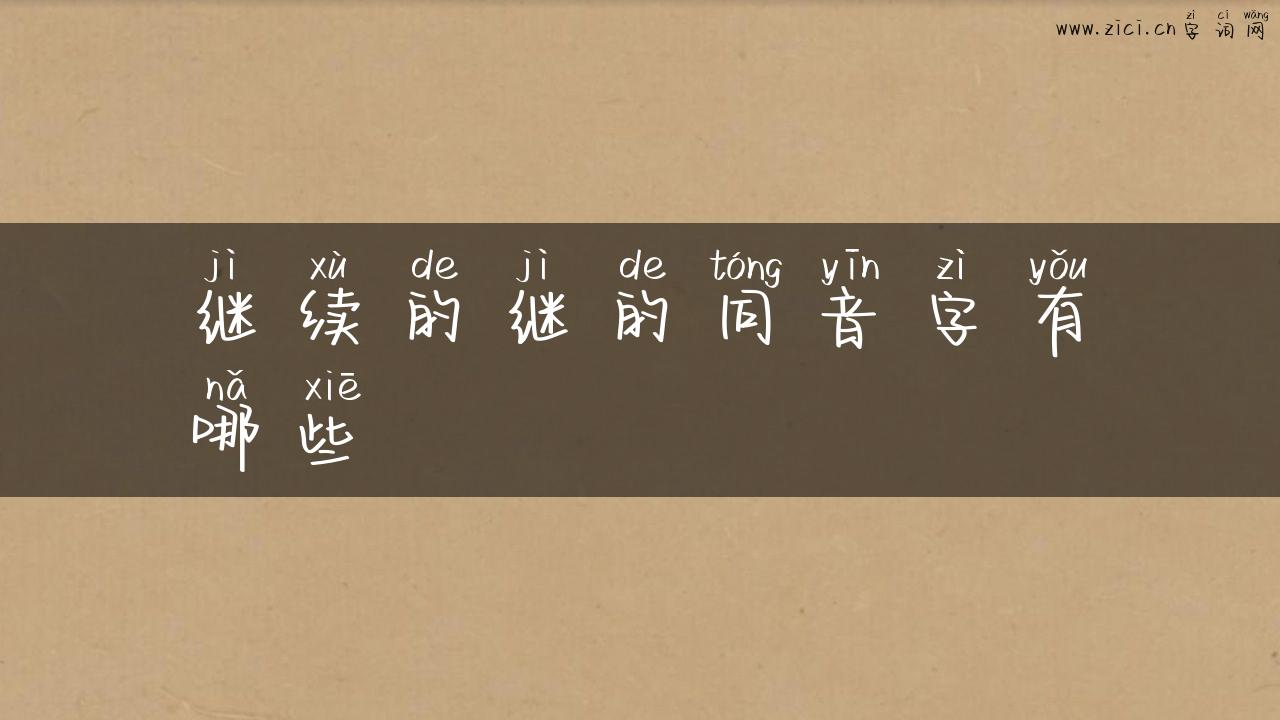 zì cí wǎng
www.zici.cn 字 词 网
jì xù de jì de tóng yīn zì yǒu
继 续 的 继 的 同 音 字 有
nǎ xiē
哪 些